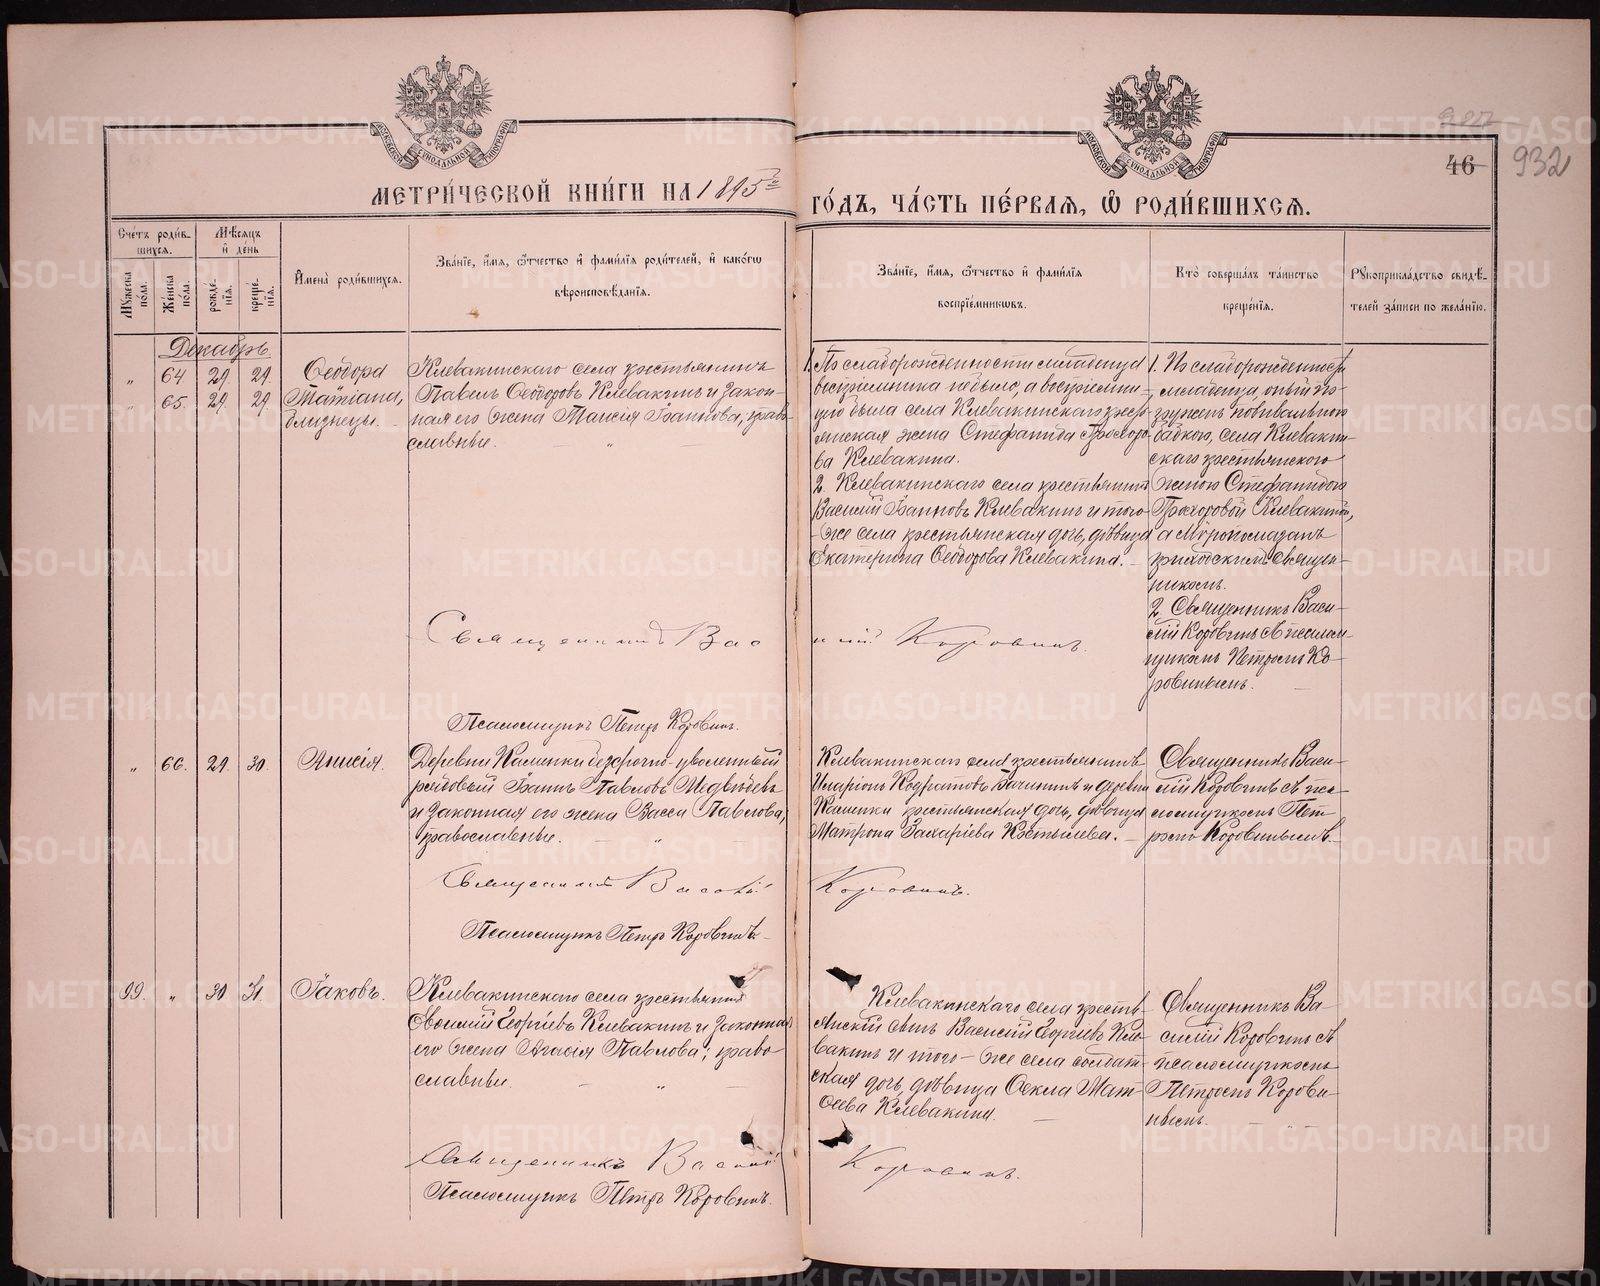 МОСКОВСКОЙ СѴНОДАЛЬНОЙ ТИПОГРАФІИ
МОСКОВСКОЙ СѴНОДАЛЬНОЙ ТИПОГРАФІИ
46
932
МЕТРИ́ЧЕСКОЙ КНИ́ГИ НА 1895й
ГО́ДЪ, ЧА́СТЬ ПЕ́РВАЯ, Ѽ РОДИ́ВШИХСЯ.
Сче́тъ роди́в-
шихся.
Мѣсяцъ
и҆ де́нь
Му́жеска по́ла.
Же́нска по́ла.
рожде́-
нїя.
креще́-
нїя.
И҆мена̀ роди́вшихся.
Зва́нїе, и҆́мя, ѻ҆́тчество и҆ фами́лїя роди́телей, и҆ како́гѡ
вѣроисповѣ́данїя.
Зва́нїе, и҆́мя, ѻ҆́тчество и҆ фами́лїя
воспрїе́мниковъ.
Кто̀ соверша́лъ та́инство
креще́нїя.
Рꙋкоприкла́дство свидѣ́-
телей за́писи по жела́нїю.
Декабрь.
" 64. 29. 29. Ѳеодора
" 65. 29. 29. Татіана,
близнецы.
Клевакинскаго села крестьянинъ
Павелъ Ѳеодоровъ Клевакинъ и закон-
ная его жена Таисія Іоаннова, право-
славные.
1. По слаборожденности младенца
воспріемника небыло, а воспріемни-
цею была села Клевакинскаго крестьянская жена Стефанида Прохоро-
ва Клевакина.
2. Клевакинскаго села крестьянинъ
Василій Іоанновъ Клевакинъ и того-
же села крестьянская дочь, дѣвица
Екатерина Ѳеодорова Клевакина.
1. По слаборожденности
младенца, оный по-
груженъ повивальною
бабкою, села Клевакин-
скаго крестьянскою
женою Стефанидою
Прохоровой Клевакиной,
а мѵропомазанъ
приходскимъ священ-
никомъ.
2. Священникъ Васи-
лій Коровинъ съ псалом-
щикомъ Петромъ Ко-
ровинымъ.
Священникъ Василій Коровинъ.
Псаломщикъ Петръ Коровинъ.
" 66. 29. 30. Анисія.
Деревни Каменки безсрочно-уволенный
рядовой Іоаннъ Павловъ Медвѣдевъ
и законная его жена Васса Павлова,
православные.
Клевакинскаго села крестьянинъ
Иларіонъ Кодратовъ Бачининъ и деревни
Каменки крестьянская дочь, дѣвица
Матрона Захаріева Костылева.
Священникъ Васи-
лій Коровинъ съ пса-
ломщикомъ Пет-
ромъ Коровинымъ.
Священникъ Василій Коровинъ.
Псаломщикъ Петръ Коровинъ.
99. " 30. 31. Іаковъ.
Клевакинскаго села крестьянинъ
Евѳимій Георгіевъ Клевакинъ и законная
его жена Агафія Павлова; право-
славные.
Клевакинскаго села кресть-
янскій сынъ Василій Георгіевъ Кле-
вакинъ и того-же села солдат-
ская дочь, дѣвица Ѳекла Мат-
ѳеева Клевакина.
Священникъ Ва-
силій Коровинъ съ
псаломщикомъ
Петромъ Корови-
нымъ.
Священникъ Василій Коровинъ.
Псаломщикъ Петръ Коровинъ.
METRIKI.GASO-URAL.RU